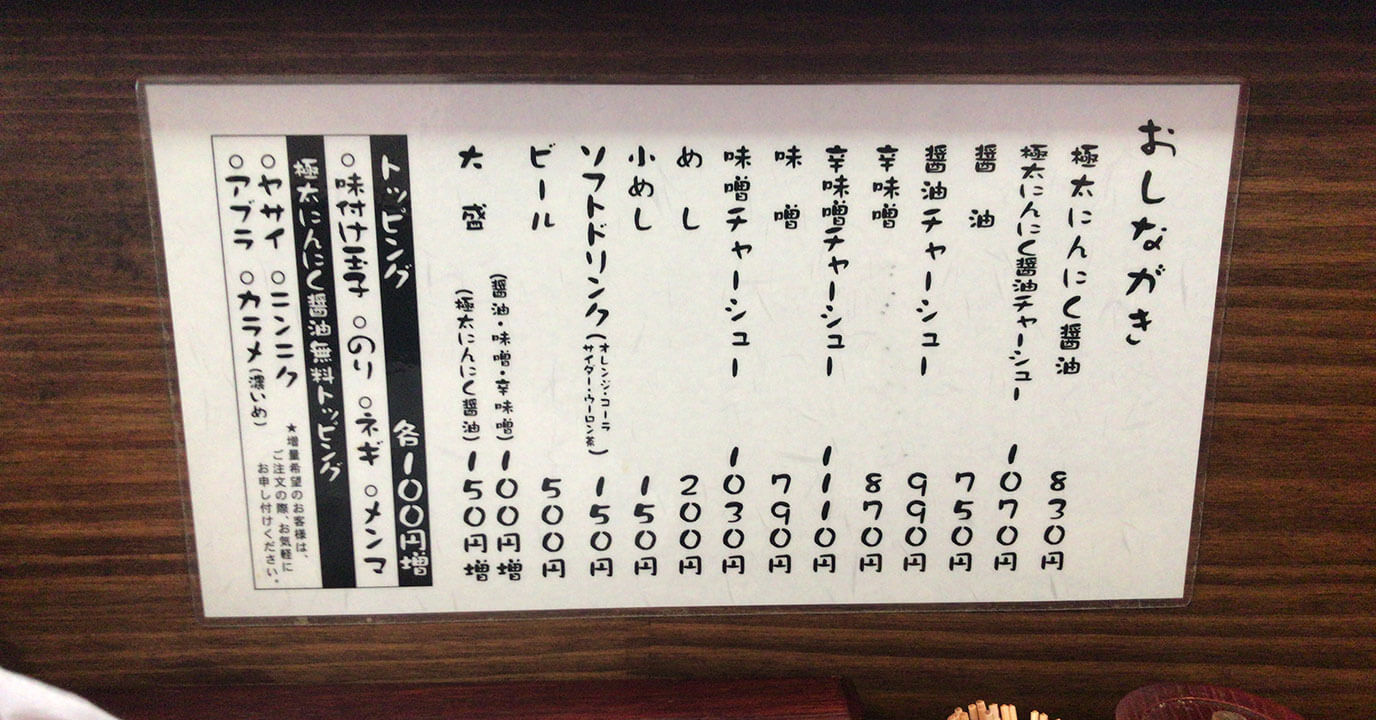 おしながき
極太にんにく醤油 830円
極太にんにく醤油チャーシュー 1070円
醤油 750円
醤油チャーシュー 990円
辛味噌 870円
辛味噌チャーシュー 1110円
味噌 790円
味噌チャーシュー 1030円
めし 200円
小めし 150円
ソフトドリンク(オレンジ・コーラ
サイダー・ウーロン茶) 150円
ビール 500円
大盛 (醤油・味噌・辛味噌) 100円増
(極太にんにく醤油) 150円増
トッピング 各100円増
○味付け玉子 ○のり ○ネギ ○メンマ
極太にんにく醤油無料トッピング
○ヤサイ ○ニンニク
○アブラ ○カラメ(濃いめ)
★増量希望のお客様は、
ご注文の際、お気軽に
お申し付けください。